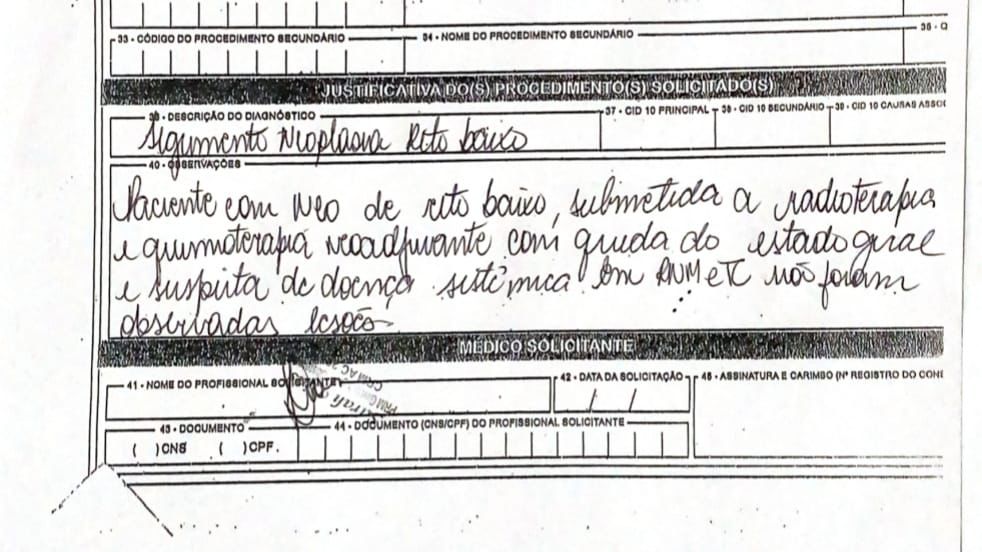 33 - CÓDIGO DO PROCEDIMENTO SECUNDÁRIO
34 - NOME DO PROCEDIMENTO SECUNDÁRIO
35 - Q
JUSTIFICATIVA DO(S) PROCEDIMENTO(S) SOLICITADO(S)
36 - DESCRIÇÃO DO DIAGNÓSTICO
37 - CID 10 PRINCIPAL
38 - CID 10 SECUNDÁRIO
39 - CID 10 CAUSAS ASSOC
Seguimento Neoplasia Reto baixo
40 - OBSERVAÇÕES
Paciente com Neo de reto baixo, submetida a radioterapia
e quimioterapia neoadjuvante com queda do estado geral
e suspeita de doença sistêmica. Em RNM e TC não foram
observadas lesões
MÉDICO SOLICITANTE
41 - NOME DO PROFISSIONAL SOLICITANTE
42 - DATA DA SOLICITAÇÃO
45 - ASSINATURA E CARIMBO (Nº REGISTRO DO CONS
/ /
43 - DOCUMENTO
44 - DOCUMENTO (CNS/CPF) DO PROFISSIONAL SOLICITANTE
( )CNS ( )CPF.